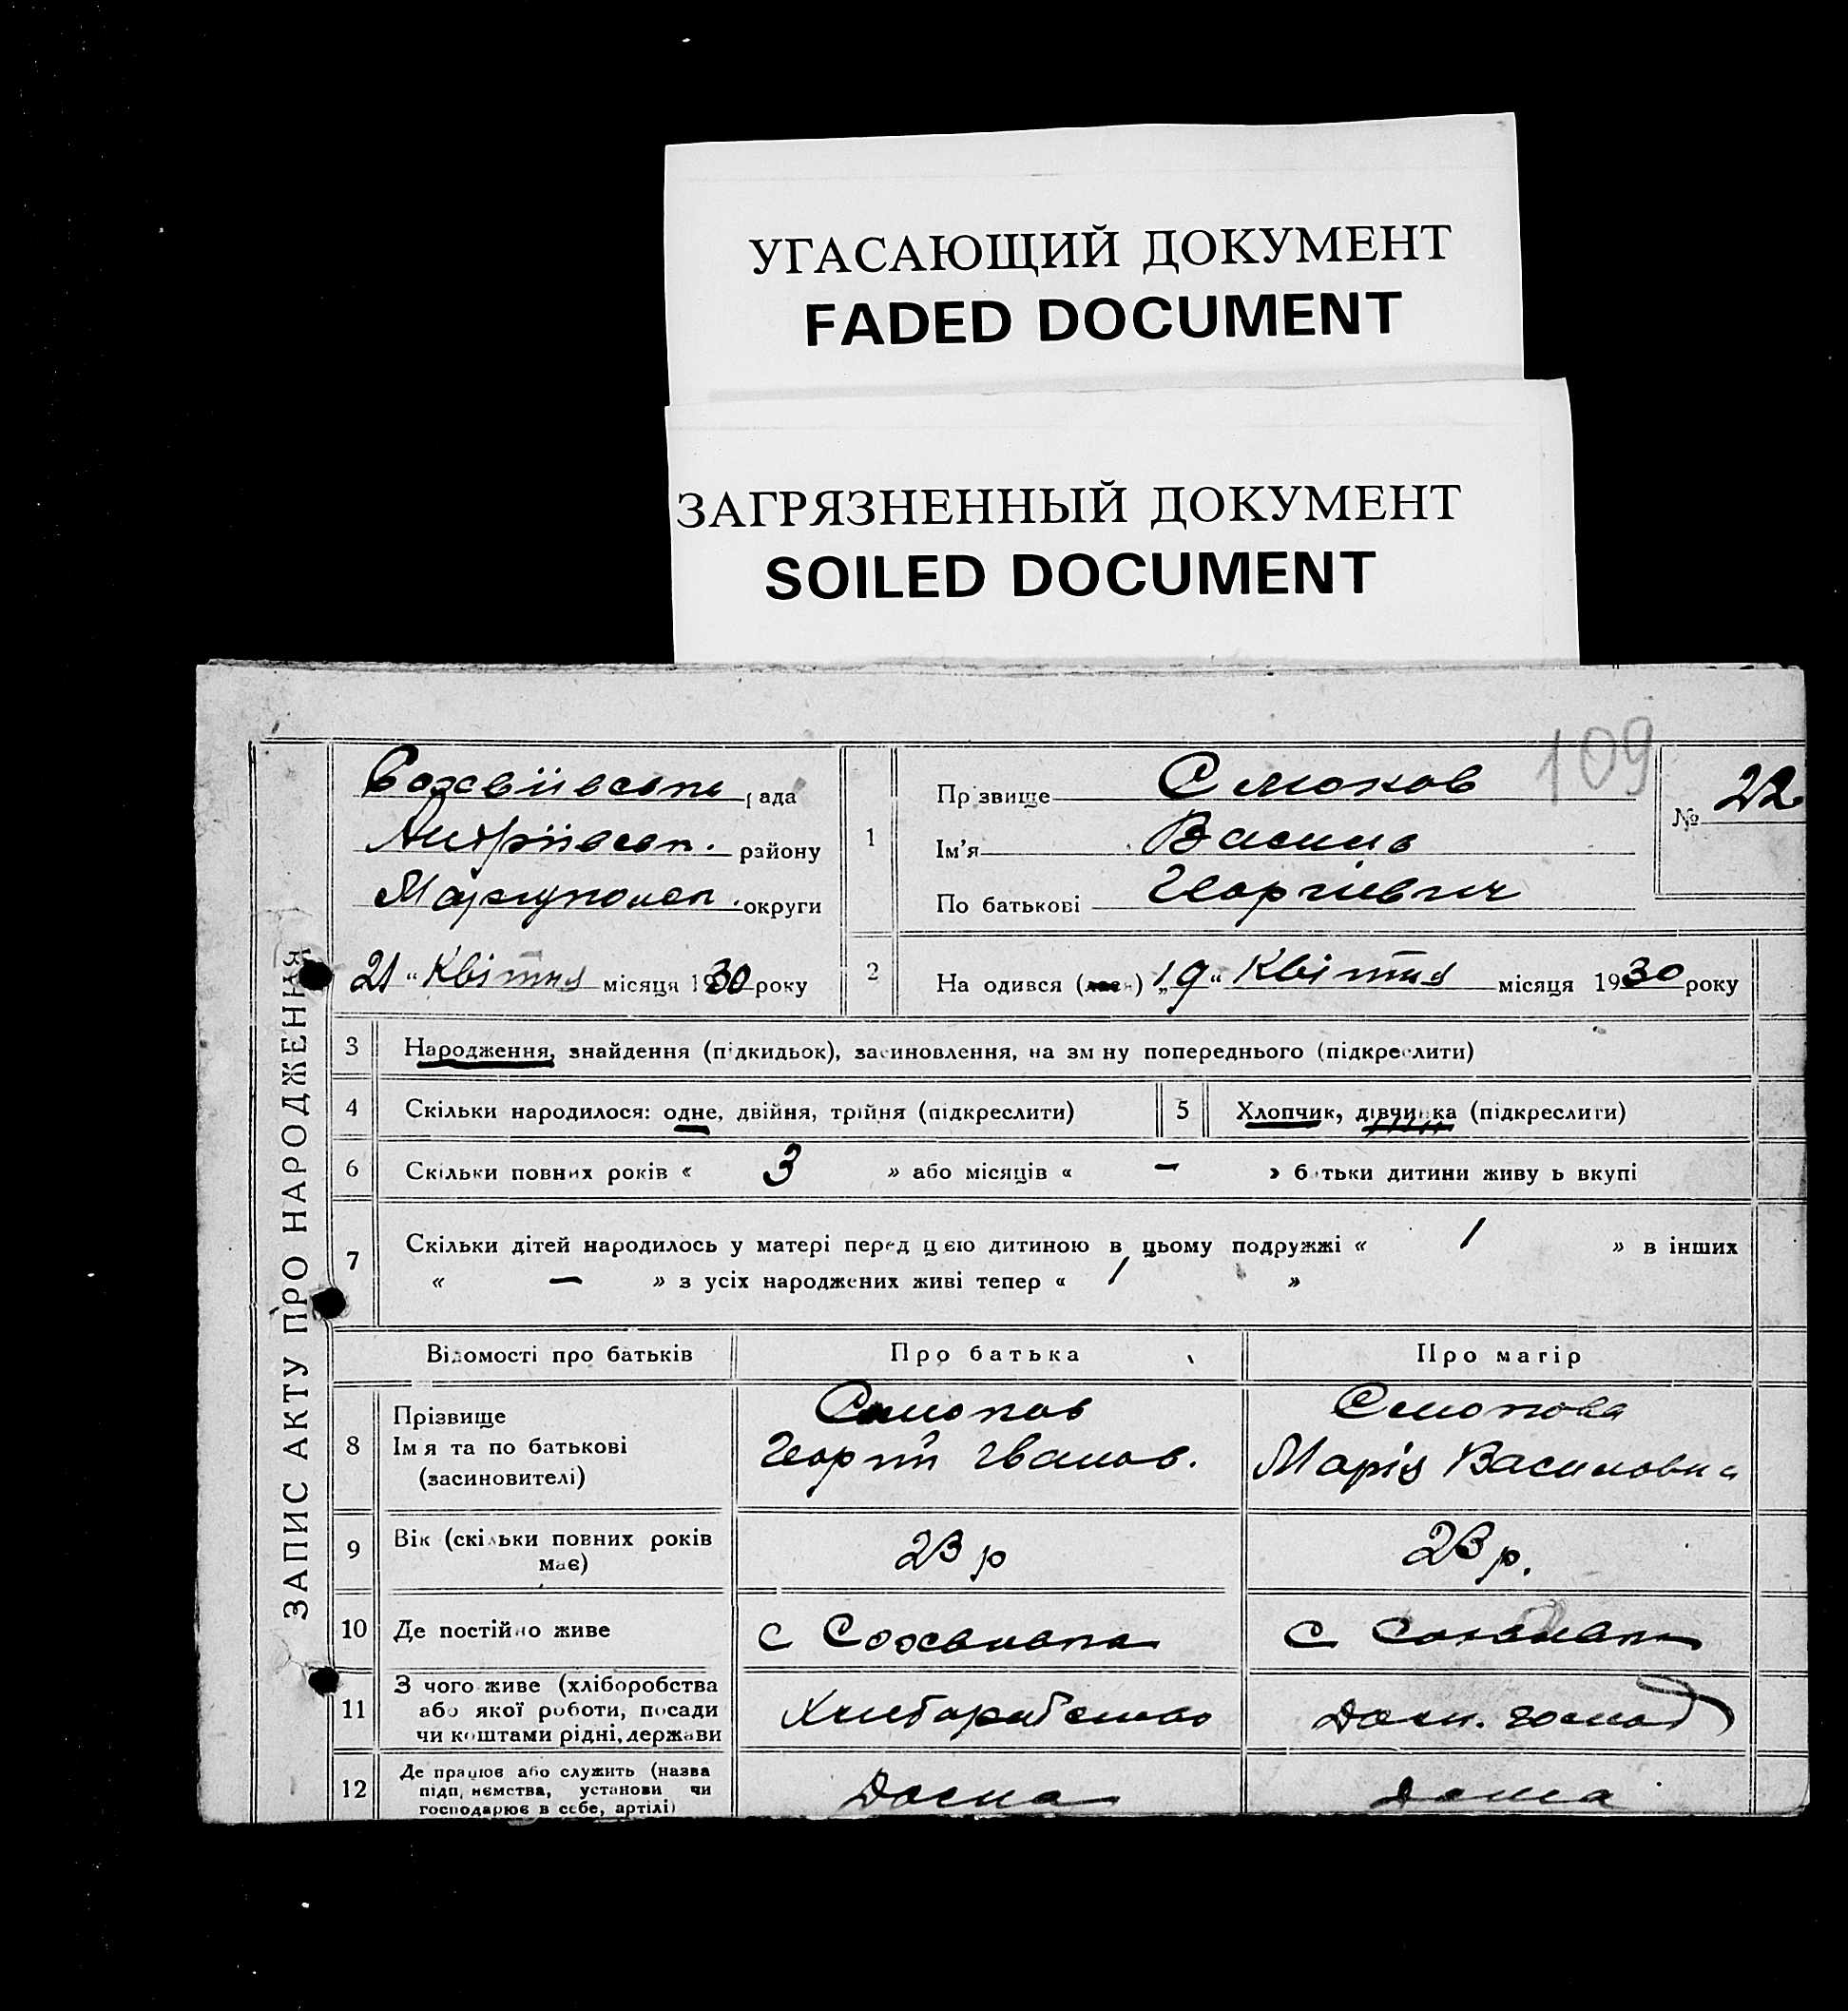 УГАСАЮЩИЙ ДОКУМЕНТ
FADED DOCUMENT
ЗАГРЯЗНЕННЫЙ ДОКУМЕНТ
SOILED DOCUMENT
109
ЗАПИС АКТУ ПРО НАРОДЖЕННЯ
рада
Андріївськ. району
Маріупольск. округи
21 " Квітня місяця 1930 року
1
Прізвище
Ім'я Василь
По батькові Георгіевич
№ 22
2 На одився „19" Квітня місяця 1930 року
3 Народження, знайдення (підкидьок), засиновлення, на зм ну попереднього (підкреслити)
4 Скільки народилося: одне, двійня, трійня (підкреслити)
5 Хлопчик, дівчинка (підкреслити)
6 Скільки повних років « 3 » або місяців « — » б тьки дитини живу ь вкупі
7 Скільки дітей народилось у матері перед цією дитиною в цьому подружжі « 1 » в інших
« — » з усіх народжених живі тепер « 1 »
Відомості про батьків Про батька Про матір
8 Прізвище
Ім я та по батькові Георгій Іванов. Марія Василовна
(засиновителі)
9 Вік (скільки повних років має) 23 р 23 р.
10 Де постійно живе с с
11 З чого живе (хліборобства
або якої роботи, посади
чи коштами рідні, держави
Хліборобство Дом. господ
12 Де працює або служить (назва
підп, немства, установи чи
господарює в себе, артілі)
Дома дома